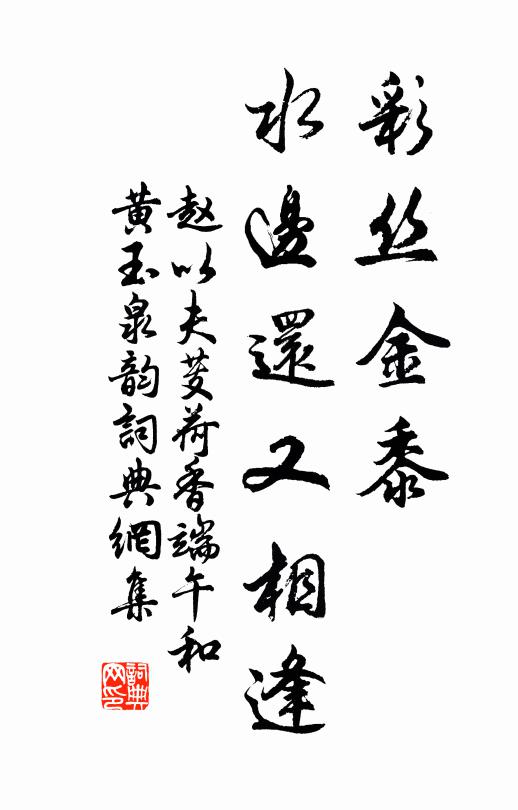 彩丝金黍
水邊還又相逢
赵以夫芰荷香端午和
黄玉泉韵詞典網集
詞典网印